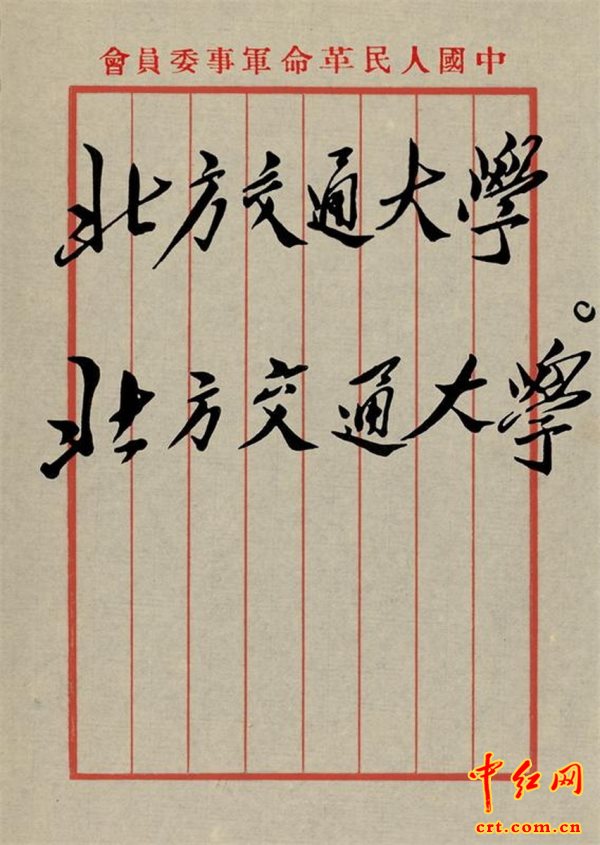 中國人民革命軍事委員會
北方交通大學
北方交通大學
中红网
crt.com.cn